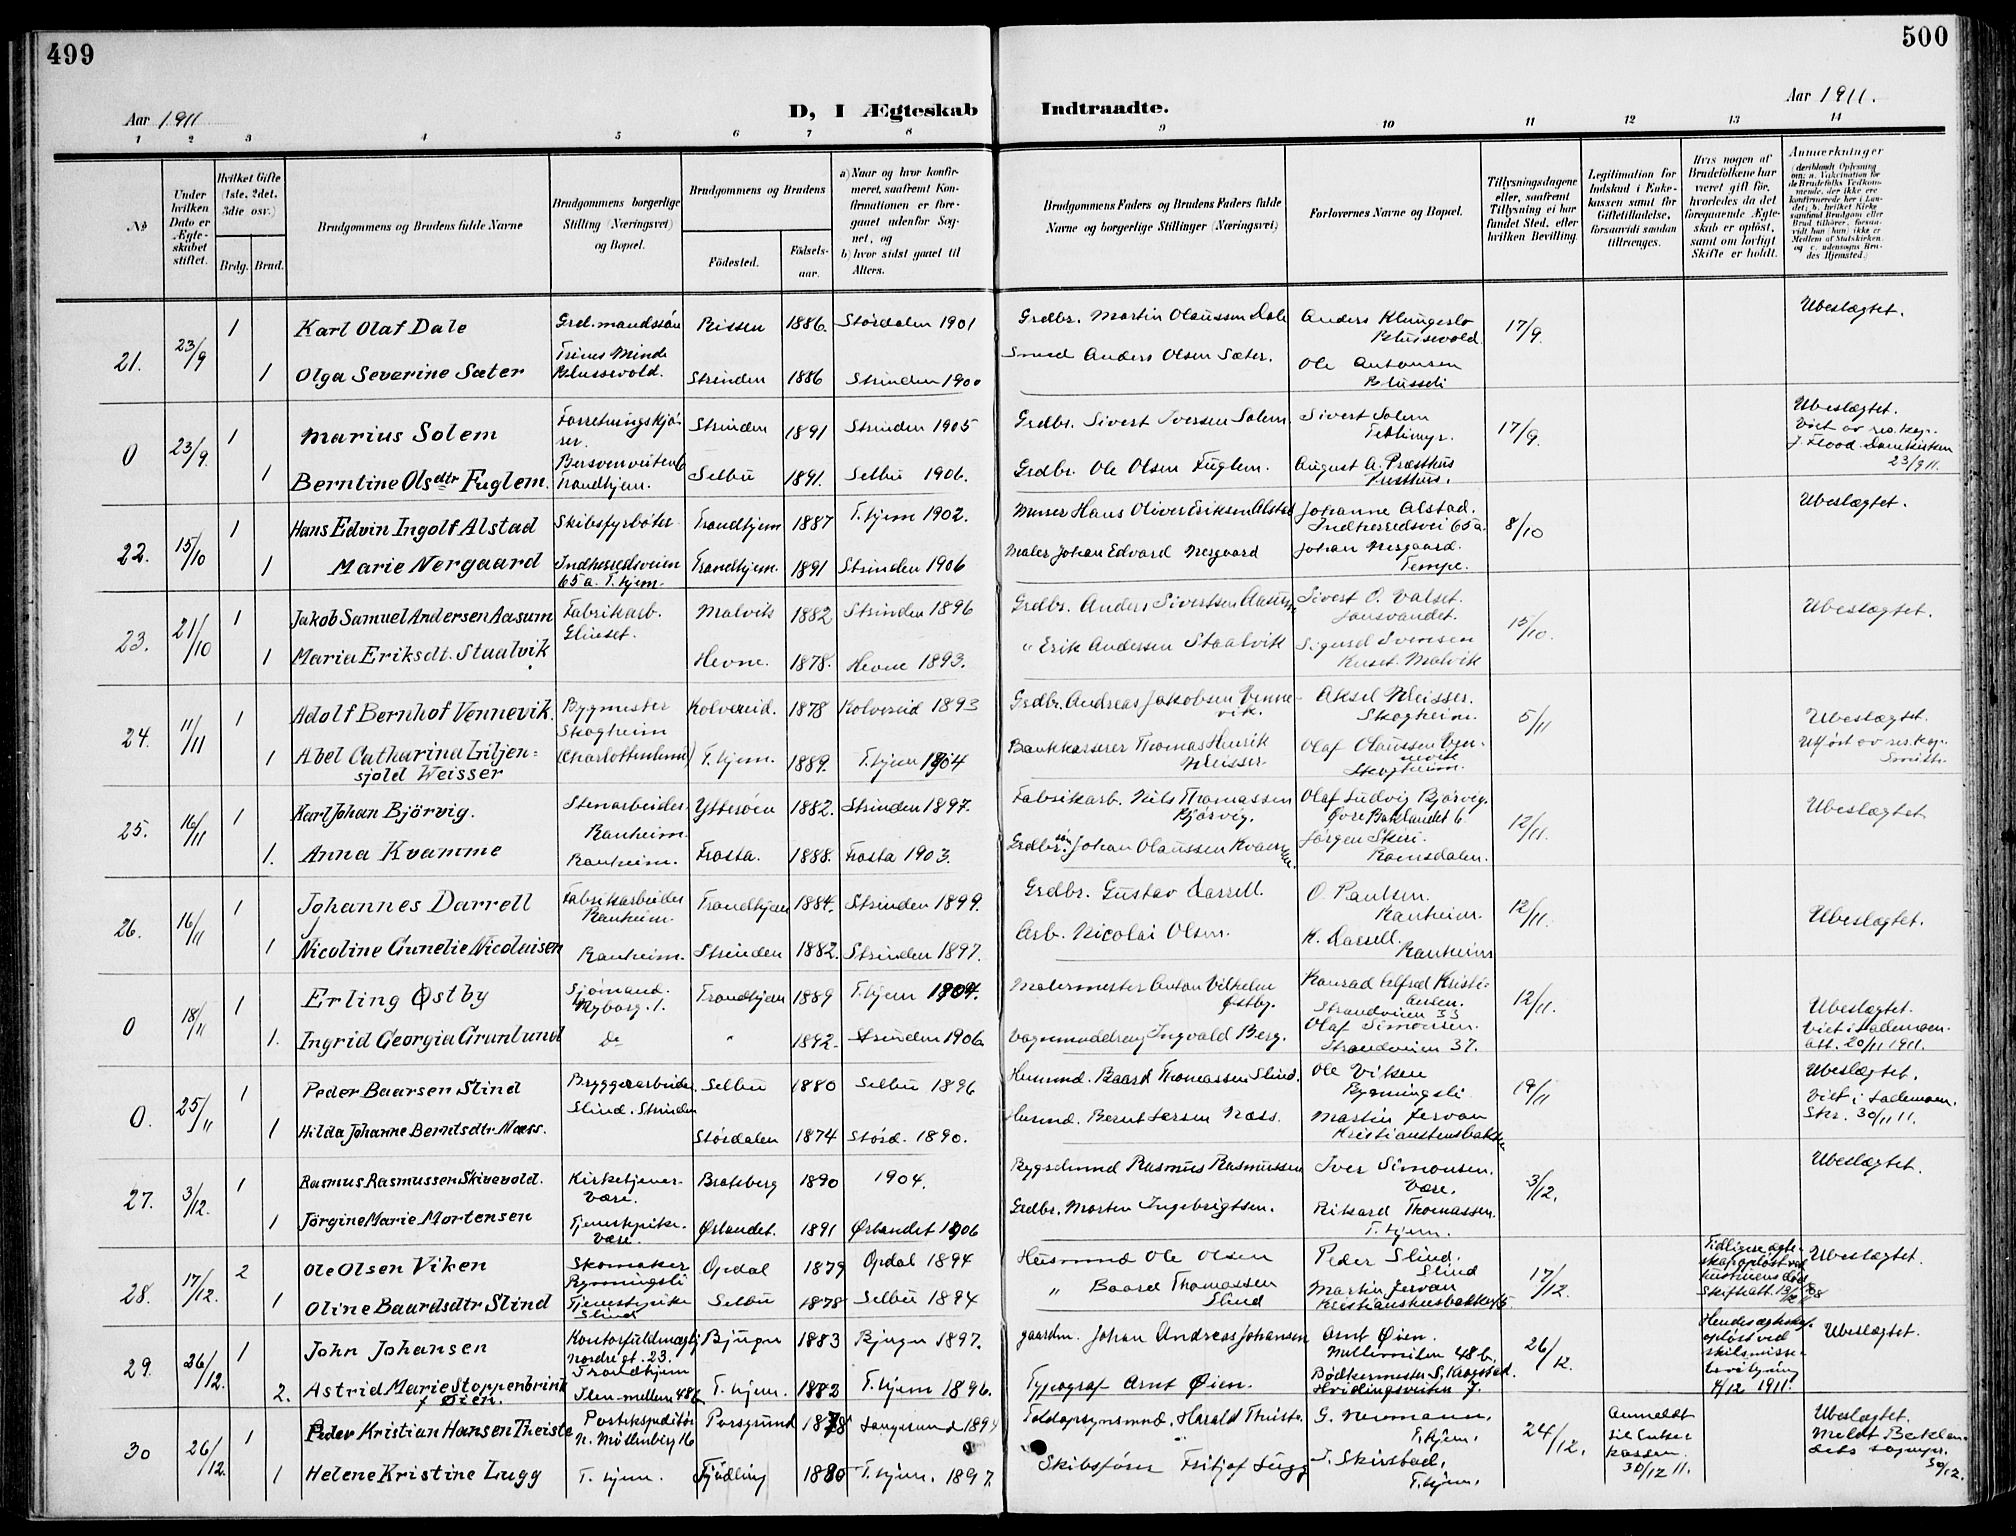 499
500
Aar 1911
D, I Ægteskab Indtraadte.
Aar 1911.
1 2 3 4 5 6 7 8 9 10 11 12 13 14
No
Under hvilken Dato er Ægteskabet stiftet.
Hvilket Gifte (1ste, 2det, 3die osv.)
Brdg. Brud.
Brudgommens og Brudens fulde Navne
Brudgommens borgerlige Stilling (Næringsvei) og Bopæl.
Brudgommens og Brudens
Födested. Födselsaar.
a) Naar og hvor konfirmeret, saafremt Konfirmationen er foregaaet udenfor Sognet, og
b) hvor sidst gaaet til Alters.
Brudgommens Faders og Brudens Faders fulde Navne og borgerlige Stillinger (Næringsvei)
Forlovernes Navne og Bopæl.
Tillysningsdagene eller, saafremt Tillysning ei har fundet Sted, efter hvilken Bevilling.
Legitimation for Indskud i Enkekassen samt for Giftetilladelse, forsaavidt saadan tiltrænges.
Hvis nogen af Brudefolkene har været gift før, hvorledes da det foregaaende Ægteskab er opløst, samt om lovligt Skifte er holdt.
Anmærkninger
21. 23/9 1 Karl Olaf Dale Grd.mandssøn Rissen 1886. Stördalen 1901 Grdbr. Martin Olaussen Dale Anders Klungerbo Blussevold. 17/9. Ubeslægtet.
Trines Minde Blussevold.
1 Olga Severine Sæter Strinden 1886 Strinden 1900 Smed Anders Olsen Sæter. Ole Antonsen
0 23/9. 1 Marius Solem Forretningskjører. Strinden 1891 Strinden 1905 Grdbr. Sivert Iversen Solem Sivert Solem 17/9. Ubeslægtet.
Viet av res. kap. J. Flood Domkirken 23/9 11.
1 Berntine Olsdtr Fuglem. Trondhjem. Selbu 1891. Selbu 1906. Grdbr. Ole Olsen Fuglem. August A. Præsthus
22. 15/10 1 Hans Edvin Ingolf Alstad Skibsfyrbøter Trondhjem 1887 T.hjem 1902. Murer Hans Oliver Eriksen Alstad Johanne Alstad. Indherredsvei 65 a. 8/10 Ubeslægtet.
1 Marie Nergaard Indherredsveien 65 a. T.hjem. Trondhjem. 1891 Strinden 1906 Maler Johan Edvard Nergaard Johan Nergaard. Tempe.
23. 21/10 1 Jakob Samuel Andersen Aasum Fabrikarb. Malvik 1882 Strinden 1896 Grdbr. Anders Sivertsen Aasum Sivert O. Valset. Jonsvandet. 15/10. Ubeslægtet.
1 Maria Eriksdt. Staalvik Hevne. 1878. Hevne 1893. " Erik Andersen Staalvik Sigurd Svensen Malvik
24. 11/11 1 Adolf Bernhof Vennevik. Bygmester Skogheim Kolvereid. 1878 Kolvereid 1893 Grdbr. Andreas Jakobsen Vennevik. Aksel Weisser. Skogheim. 5/11 Ubeslægtet.
Utført av res. kap. Smith
1 Abel Catharina Liljensjold Weisser (Charlottenlund) T.hjem. 1889. T.hjem 1904 Bankkasserer Thomas Henrik Weisser Olaf Olaussen Vennevik Skogheim.
25. 16/11 1 Karl Johan Björvig. Stenarbeider Ranheim. Ytterøen 1882. Strinden 1897. Fabrikarb. Nils Thomassen Bjørvig. Olaf Ludvig Bjørvig. Øvre Baklandet 6. 12/11. Ubeslægtet
1. Anna Kvamme Ranheim. Frosta. 1888. Frosta 1903. Grdbr. Johan Olaussen Kvamme Jørgen Skiri Romsdalen.
26. 16/11 1 Johannes Darrell Fabrikarbeider Ranheim. Trondhjem 1884. Strinden 1899. Grdbr. Gustav Darrell. O. Paulsen Ranheim. 12/11. Ubeslægtet.
1 Nicoline Gunelie Nicolaisen Ranheim. Strinden 1882. Strinden 1897. Arb. Nicolai Olsen. K. Darrell. Ranheim
0 18/11 1 Erling Østby Sjømand. Nyborg. 1. Trondhjem 1889 T.hjem 1904. Malermester Anton Vilhelm Østby. Konrad Alfred Kristiansen. Strandveien 33 12/11. Ubeslægtet.
Viet i Lademoen. 20/11 1911.
1. Ingrid Georgia Grunlund Do " 1892. Strinden 1906. Vognmanddreng Ingvald Berg. Olaf Simonsen. Strandveien 37.
0. 25/11 1 Peder Baarsen Slind Bryggeriarbeider Slind. Strinden Selbu 1880 Selbu 1896 Husmd. Baard Thomassen Slind. Ole Viken Rymningsli 19/11 Ubeslægtet.
Viet i Lademoen. 30/11 11.
1 Hilda Johanne Berndtsdtr Næss. Stördalen 1874 Störd. 1890. Husmd. Bernt Larsen Næss. Martin Jervan Kristianstensbakken
27. 3/12. 1 Rasmus Rasmussen Skivevold. Kirketjener Være. Bratsberg 1890 1904. Bygselmand Rasmus Rasmussen Iver Simonsen. Være. 3/12. Ubeslægtet.
1 Jörgine Marie Mortensen Tjenestepike. Være. Ørlandet. 1891 Ørlandet 1906 Grdbr. Morten Ingebrigtsen. Rikard Thomassen. T.hjem.
28. 17/12. 2 Ole Olsen Viken Skomaker Rymningsli Opdal 1879 Opdal 1894 Husmand Ole Olsen Peder Slind. Slind 17/12. Tidligere ægteskap opløst ved hustruens død Skifteatt. Ubeslægtet.
1 Oline Baardsdtr Slind Tjenestepike Slind Selbu 1878 Selbu 1894 " Baard Thomassen Slind Martin Jervan Kristianstensbakken 5
29. 26/12. 1 John Johansen Kontorfuldmægtig Nordregt. 23. Trondhjem Bjugn 1883 Bjugn 1897. gaardm. Johan Andreas Johansen Arnt Øien. Mellemilen 48 b. 26/12. Hendes ægteskap opløst ved skilsmissebevilgning 4/12 1911. Ubeslægtet.
2. Astrid Marie Stoppenbrink f. Øien. Ilen mellem 48 b T.hjem. 1883 T.hjem 1896. Typograf Arnt Øien. Bødkermester S. Kragstad. Hvidingsveiten 7.
30 26/12. 1 Peder Kristian Hansen Theiste Postekspeditør N. Möllenberg 16 Porsgrund 1878 Langesund 1894 Toldopsynsmand. Harald Theiste G. Neumann, T.hjem. 24/12. Anmeldt til Enkekassen 30/12 11. Ubeslægtet.
Meldt Baklandets sognepr. 30/12.
1 Helene Kristine Lugg T.hjem. Fjödling 1880 T.hjem. 1897. Skibsfører Fritjof Lugg J. Skirstad, T.hjem.